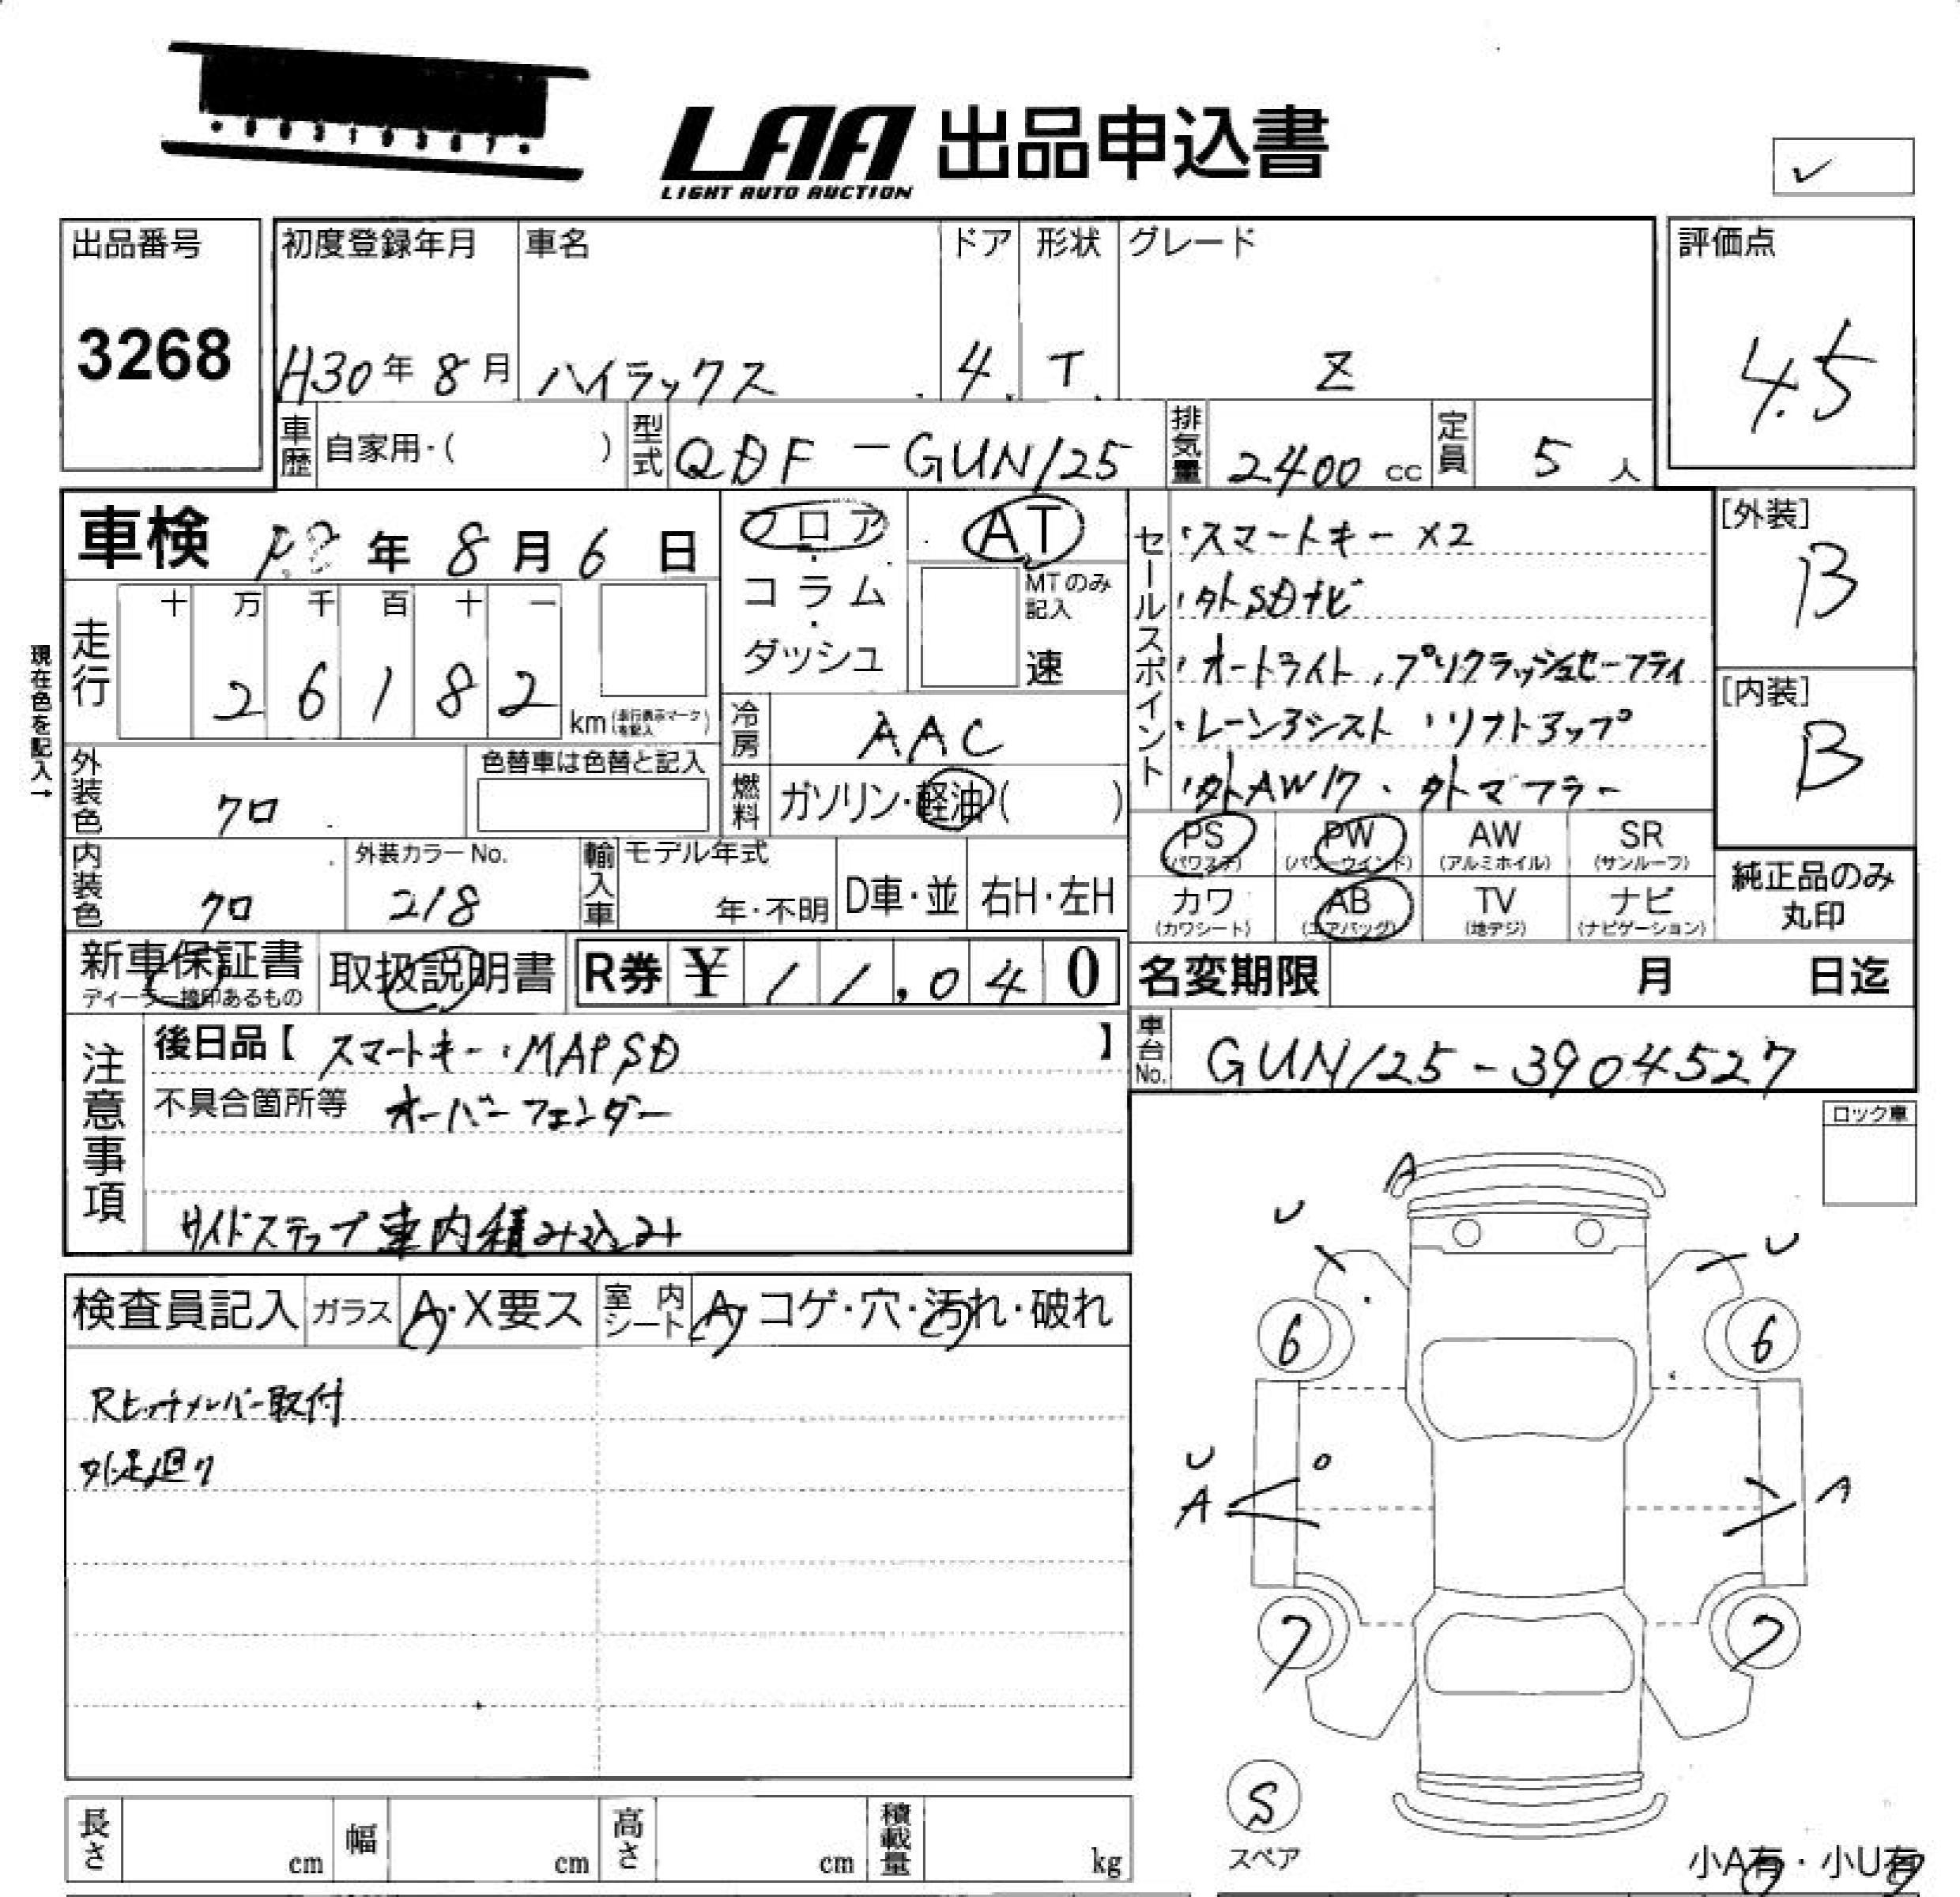 LAA 出品申込書
LIGHT AUTO AUCTION
出品番号
3268
初度登録年月
H30年8月
車名
ハイラックス
ドア
4
形状
T
グレード
Z
評価点
4.5
車歴 自家用・( )
型式 QDF-GUN125
排気量 2400 cc
定員 5 人
車検 年 8月 6日
フロア・コラム・ダッシュ
AT
MTのみ記入
速
走行
十 万 千 百 十 一
2 6 1 8 2
km (走行表示マークを記入)
現在色を記入→
冷房 AAC
燃料 ガソリン・軽油・( )
外装色 クロ
色替車は色替と記入
内装色 クロ
外装カラーNo. 218
輸入車 モデル年式
年・不明
D車・並
右H・左H
セールスポイント
・スマートキー×2
・外SDナビ
・オートライト・プリクラッシュセーフティ
・レーンアシスト・リフトアップ
・外AW17・外マフラー
[外装]
B
[内装]
B
PS (パワステ)
PW (パワーウインド)
AW (アルミホイル)
SR (サンルーフ)
カワ (カワシート)
AB (エアバッグ)
TV (地デジ)
ナビ (ナビゲーション)
純正品のみ
丸印
新車保証書
ディーラー捺印あるもの
取扱説明書
R券 ¥ 11,040
名変期限 月 日迄
車台No. GUN125-3904527
注意事項
後日品【スマートキー・MAPSD】
不具合箇所等 オーバーフェンダー
サイドステップ車内積み込み
ロック車
検査員記入
ガラス A・X要ス
室内シート A・コゲ・穴・汚れ・破れ
Rヒッチメンバー取付
外足廻り
A
U
U
6
6
U
A
A
7
7
S
スペア
小A有・小U有
長さ cm
幅 cm
高さ cm
積載量 kg